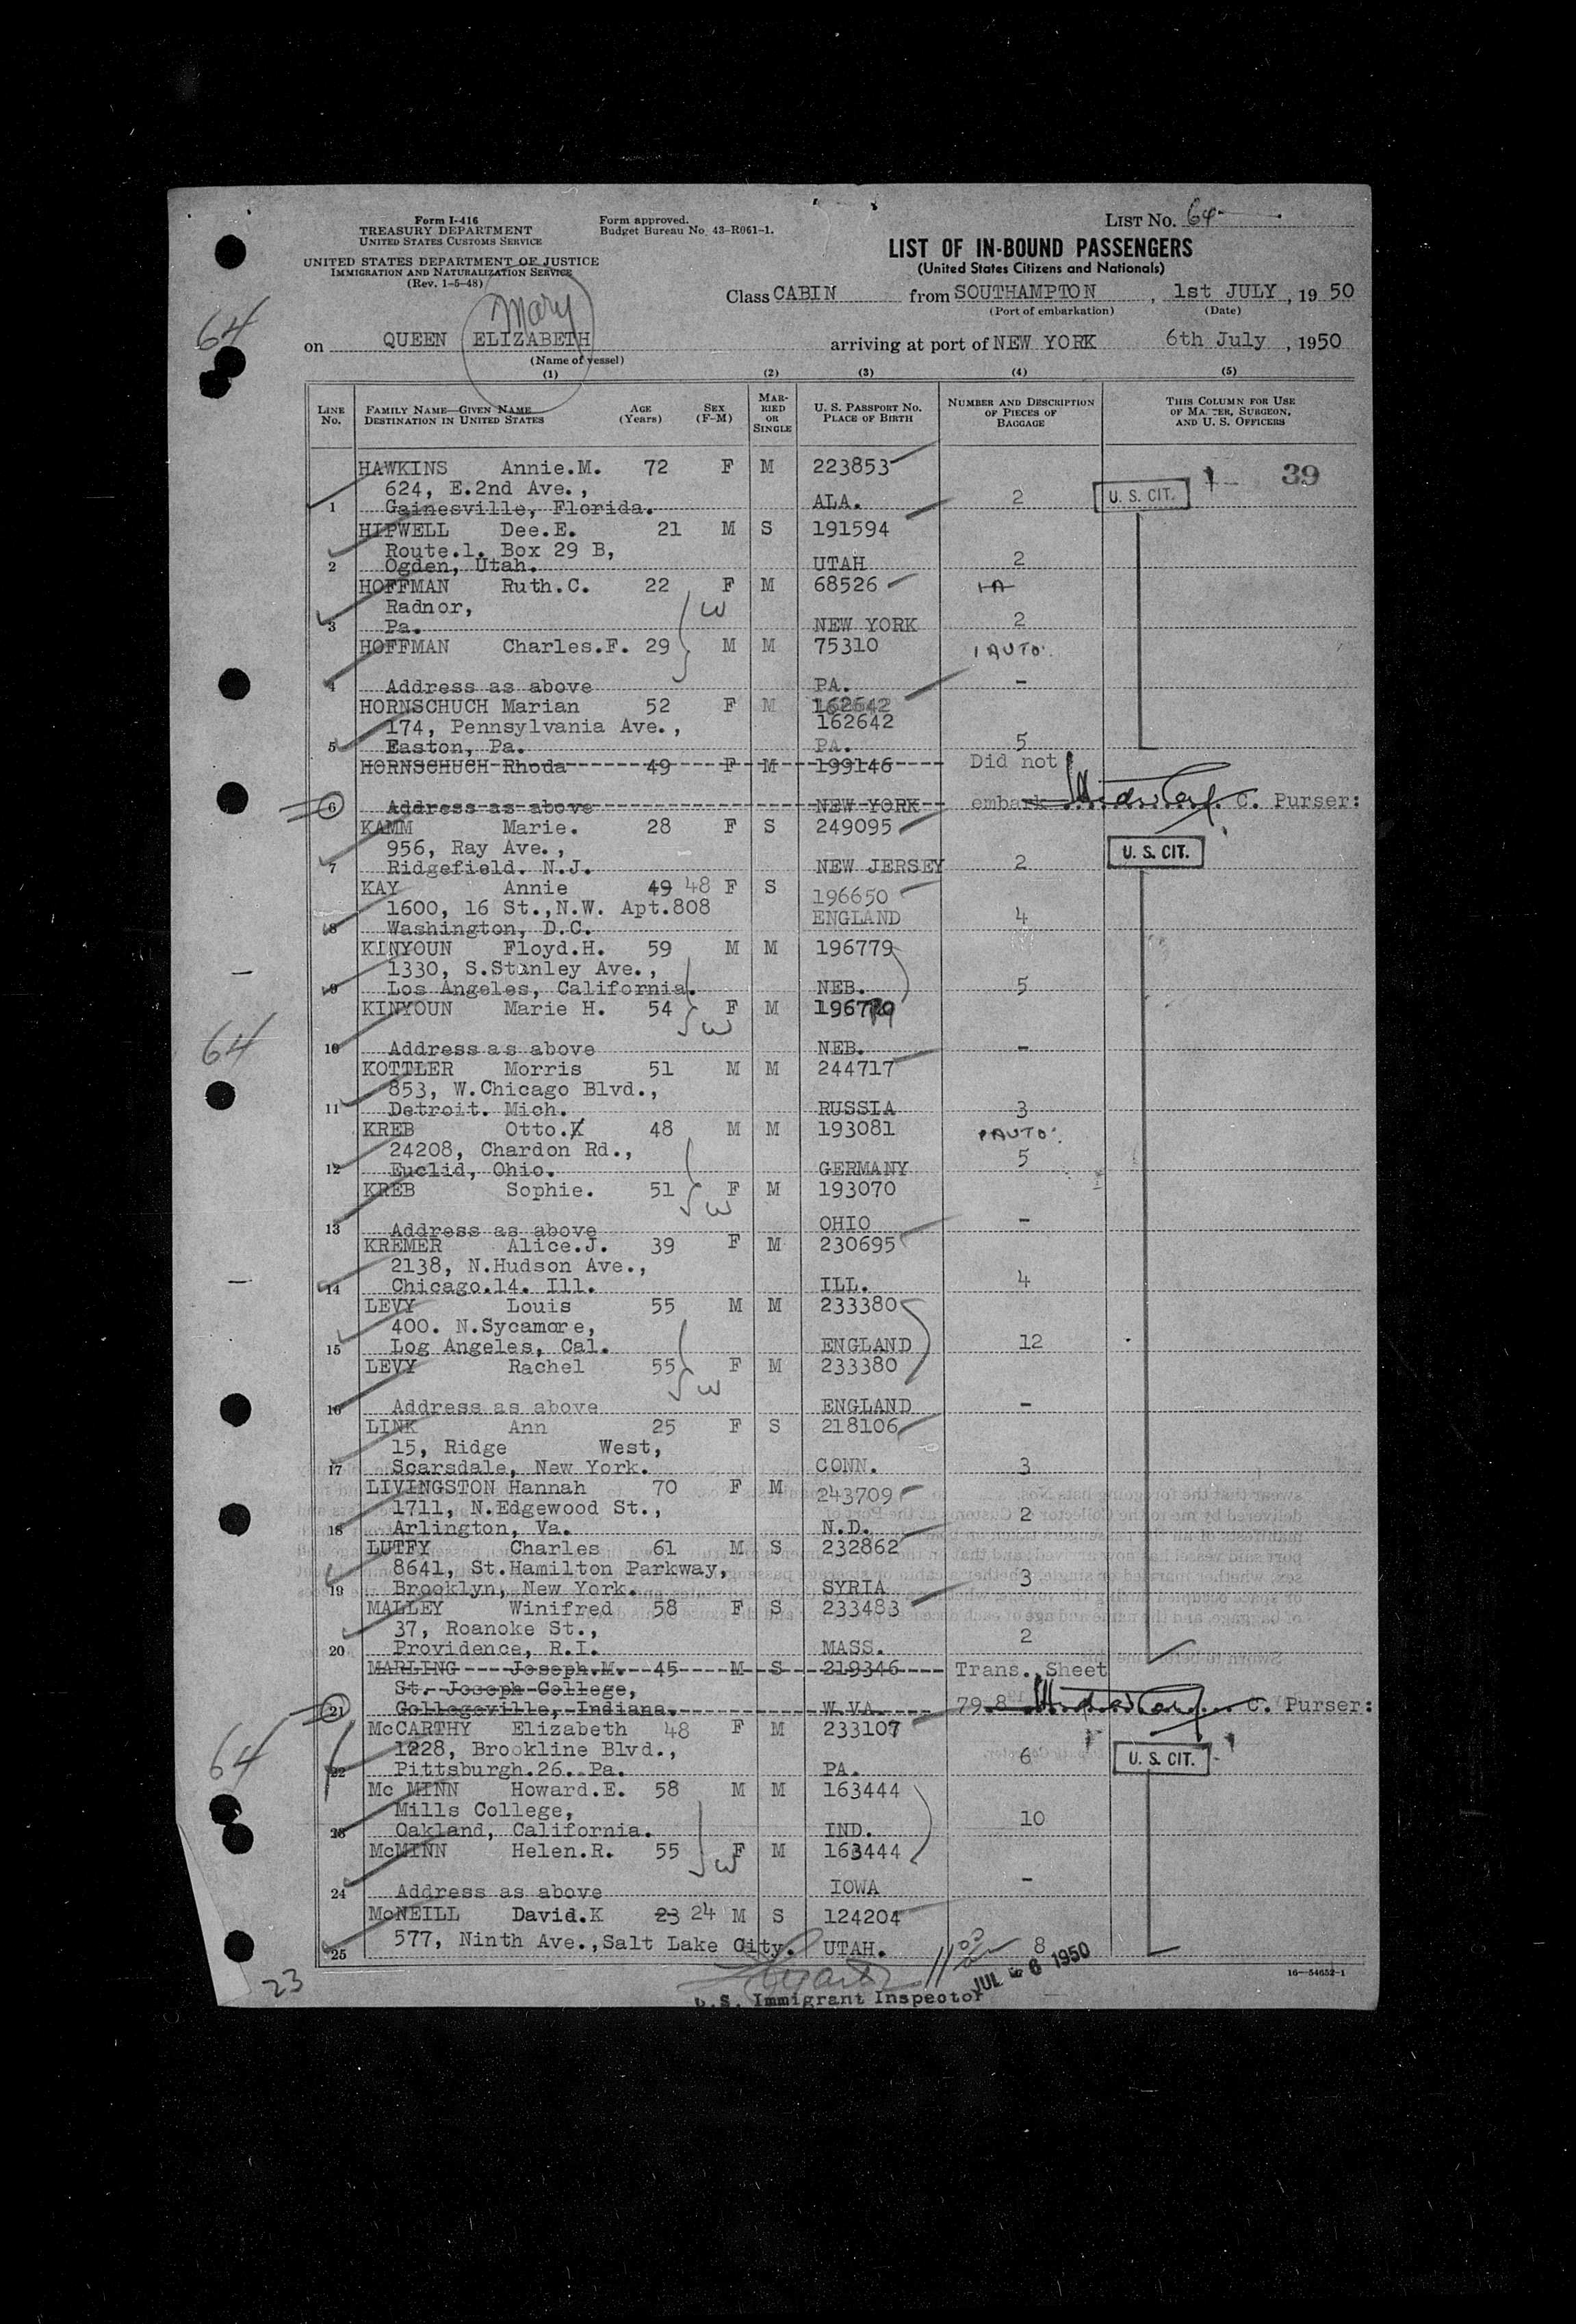 Form I-416
TREASURY DEPARTMENT
UNITED STATES CUSTOMS SERVICE
UNITED STATES DEPARTMENT OF JUSTICE
IMMIGRATION AND NATURALIZATION SERVICE
(Rev. 1-5-48)
Form approved.
Budget Bureau No. 43-R061-1.
LIST No. 64
LIST OF IN-BOUND PASSENGERS
(United States Citizens and Nationals)
Class CABIN from SOUTHAMPTON, 1st JULY, 1950
(Port of embarkation) (Date)
Mary
on QUEEN ELIZABETH arriving at port of NEW YORK 6th July, 1950
(Name of vessel)
(1) (2) (3) (4) (5)
LINE No. FAMILY NAME—GIVEN NAME DESTINATION IN UNITED STATES AGE (Years) SEX (F-M) MARRIED OR SINGLE U. S. PASSPORT No. PLACE OF BIRTH NUMBER AND DESCRIPTION OF PIECES OF BAGGAGE THIS COLUMN FOR USE OF MASTER, SURGEON, AND U. S. OFFICERS
HAWKINS Annie.M. 72 F M 223853 39
624, E.2nd Ave.,
1 Gainesville, Florida. ALA. 2 U. S. CIT.
HIPWELL Dee.E. 21 M S 191594
Route.1. Box 29 B,
2 Ogden, Utah. UTAH 2
HOFFMAN Ruth.C. 22 F M 68526
Radnor,
3 Pa. NEW YORK 2
HOFFMAN Charles.F. 29 M M 75310 1 AUTO.
4 Address as above PA. -
HORNSCHUCH Marian 52 F M 162642
174, Pennsylvania Ave., 162642
5 Easton, Pa. PA. 5
HORNSCHUCH Rhoda 49 F M 199146 Did not
6 Address as above NEW YORK embark C. Purser:
KAMM Marie. 28 F S 249095
956, Ray Ave.,
7 Ridgefield. N.J. NEW JERSEY 2 U. S. CIT.
KAY Annie 49 48 F S 196650
1600, 16 St.,N.W. Apt.808 ENGLAND 4
8 Washington, D.C.
KINYOUN Floyd.H. 59 M M 196779
1330, S.Stanley Ave.,
9 Los Angeles, California. NEB. 5
KINYOUN Marie H. 54 F M 196779
10 Address as above NEB. -
KOTTLER Morris 51 M M 244717
853, W.Chicago Blvd.,
11 Detroit. Mich. RUSSIA 3
KREB Otto.K 48 M M 193081 AUTO.
24208, Chardon Rd.,
12 Euclid, Ohio. GERMANY 5
KREB Sophie. 51 F M 193070
13 Address as above OHIO -
KREMER Alice.J. 39 F M 230695
2138, N.Hudson Ave.,
14 Chicago.14. Ill. ILL. 4
LEVY Louis 55 M M 233380
400. N.Sycamore,
15 Log Angeles, Cal. ENGLAND 12
LEVY Rachel 55 F M 233380
16 Address as above ENGLAND -
LINK Ann 25 F S 218106
15, Ridge West,
17 Scarsdale, New York. CONN. 3
LIVINGSTON Hannah 70 F M 243709
1711, N.Edgewood St.,
18 Arlington, Va. N.D. 2
LUTFY Charles 61 M S 232862
8641, St.Hamilton Parkway,
19 Brooklyn, New York. SYRIA 3
MALLEY Winifred 58 F S 233483
37, Roanoke St.,
20 Providence, R.I. MASS. 2
MARLING Joseph.M. 45 M S 219346 Trans. Sheet
St. Joseph College,
21 Collegeville, Indiana. W.VA. 79.8 C. Purser:
McCARTHY Elizabeth 48 F M 233107
1228, Brookline Blvd.,
22 Pittsburgh.26. Pa. PA. 6 U. S. CIT.
Mc MINN Howard.E. 58 M M 163444
Mills College,
23 Oakland, California. IND. 10
McMINN Helen.R. 55 F M 163444
24 Address as above IOWA -
McNEILL David.K 23 24 M S 124204
25 577, Ninth Ave.,Salt Lake City. UTAH. 8
JUL - 6 1950
U.S. Immigrant Inspector
16—54652-1
64
64
64
23